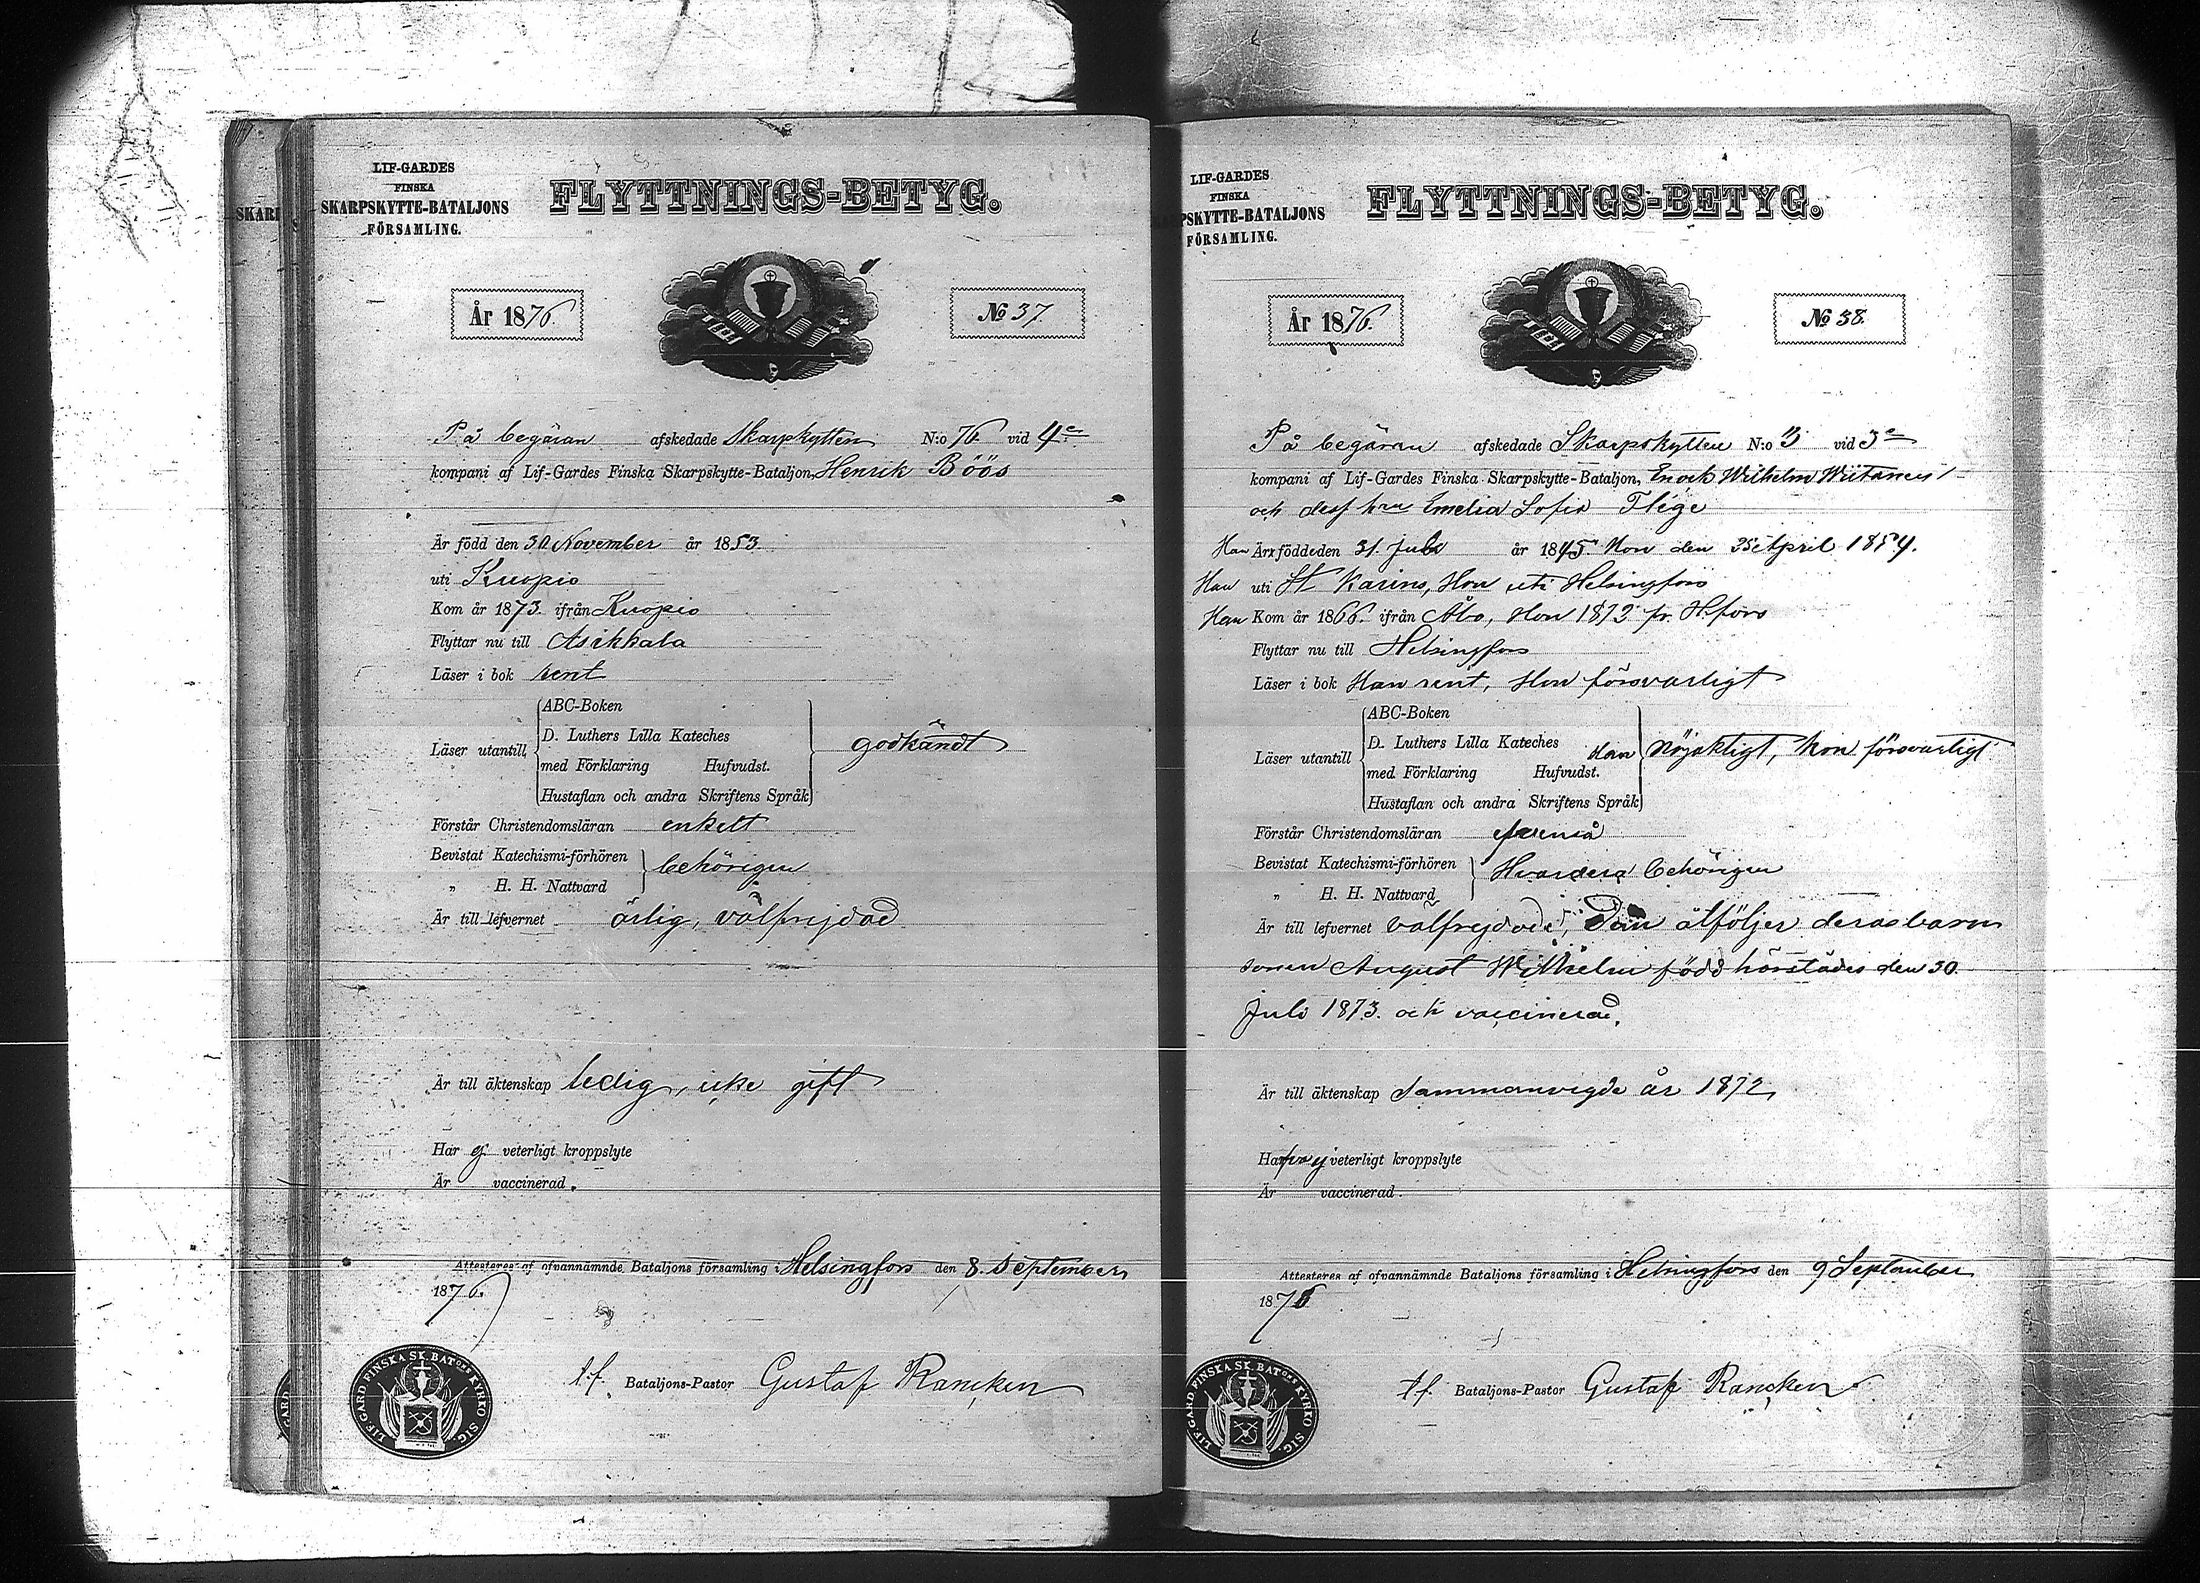 LIF-GARDES
FINSKA
SKARPSKYTTE-BATALJONS
FÖRSAMLING.
FLYTTNINGS-BETYG.
År 1876.
No 37.
På begäran afskedade Skarpskytten N:o 76 vid 4e
kompani af Lif-Gardes Finska Skarpskytte-Bataljon, Henrik Böös
Är född den 30 November år 1853.
uti Kuopio
Kom år 1873. ifrån Kuopio
Flyttar nu till Asikkala
Läser i bok rent
Läser utantill
ABC-Boken
D. Luthers Lilla Kateches
med Förklaring Hufvudst.
Hustaflan och andra Skriftens Språk
godkändt
Förstår Christendomsläran enkelt
Bevistat Katechismi-förhören
„ H. H. Nattvard
behörigen
Är till lefvernet ärlig, välfrejdad
Är till äktenskap ledig, icke gift
Har ej veterligt kroppslyte
Är vaccinerad.
Attesteras af ofvannämnde Bataljons församling i Helsingfors den 8. September
1876.
t.f. Bataljons-Pastor Gustaf Rancken
LIF.GARD.FINSKA SK.BATONS KYRKO SIG.
SKARP
LIF-GARDES
FINSKA
PSKYTTE-BATALJONS
FÖRSAMLING.
FLYTTNINGS-BETYG.
År 1876.
No 38.
På begäran afskedade Skarpskytten N:o 3 vid 3e
kompani af Lif-Gardes Finska Skarpskytte-Bataljon, Enock Wilhelm Wiitanen
och dess hru Emelia Sofia Flége
Han Är född den 31. Juli år 1845 Hon den 25 April 1854.
Han uti St Karins, Hon uti Helsingfors
Han Kom år 1866. ifrån Åbo, Hon 1872 fr. H:fors
Flyttar nu till Helsingfors
Läser i bok Han rent, Hon försvarligt
Läser utantill
ABC-Boken
D. Luthers Lilla Kateches
med Förklaring Hufvudst.
Hustaflan och andra Skriftens Språk
Han Nöjaktigt, hon försvarligt
Förstår Christendomsläran efvenså
Bevistat Katechismi-förhören
„ H. H. Nattvard
Hvardera behörigen
Är till lefvernet välfrejdade, Dem åtföljer deras barn
sonen August Wilhelm född härstädes den 30
Juli 1873. och vaccinerad.
Är till äktenskap Sammanvigde år 1872
Har ej veterligt kroppslyte
Är vaccinerad.
Attesteras af ofvannämnde Bataljons församling i Helsingfors den 9 September
1876
t.f. Bataljons-Pastor Gustaf Rancken
LIF.GARD.FINSKA SK.BATONS KYRKO SIG.